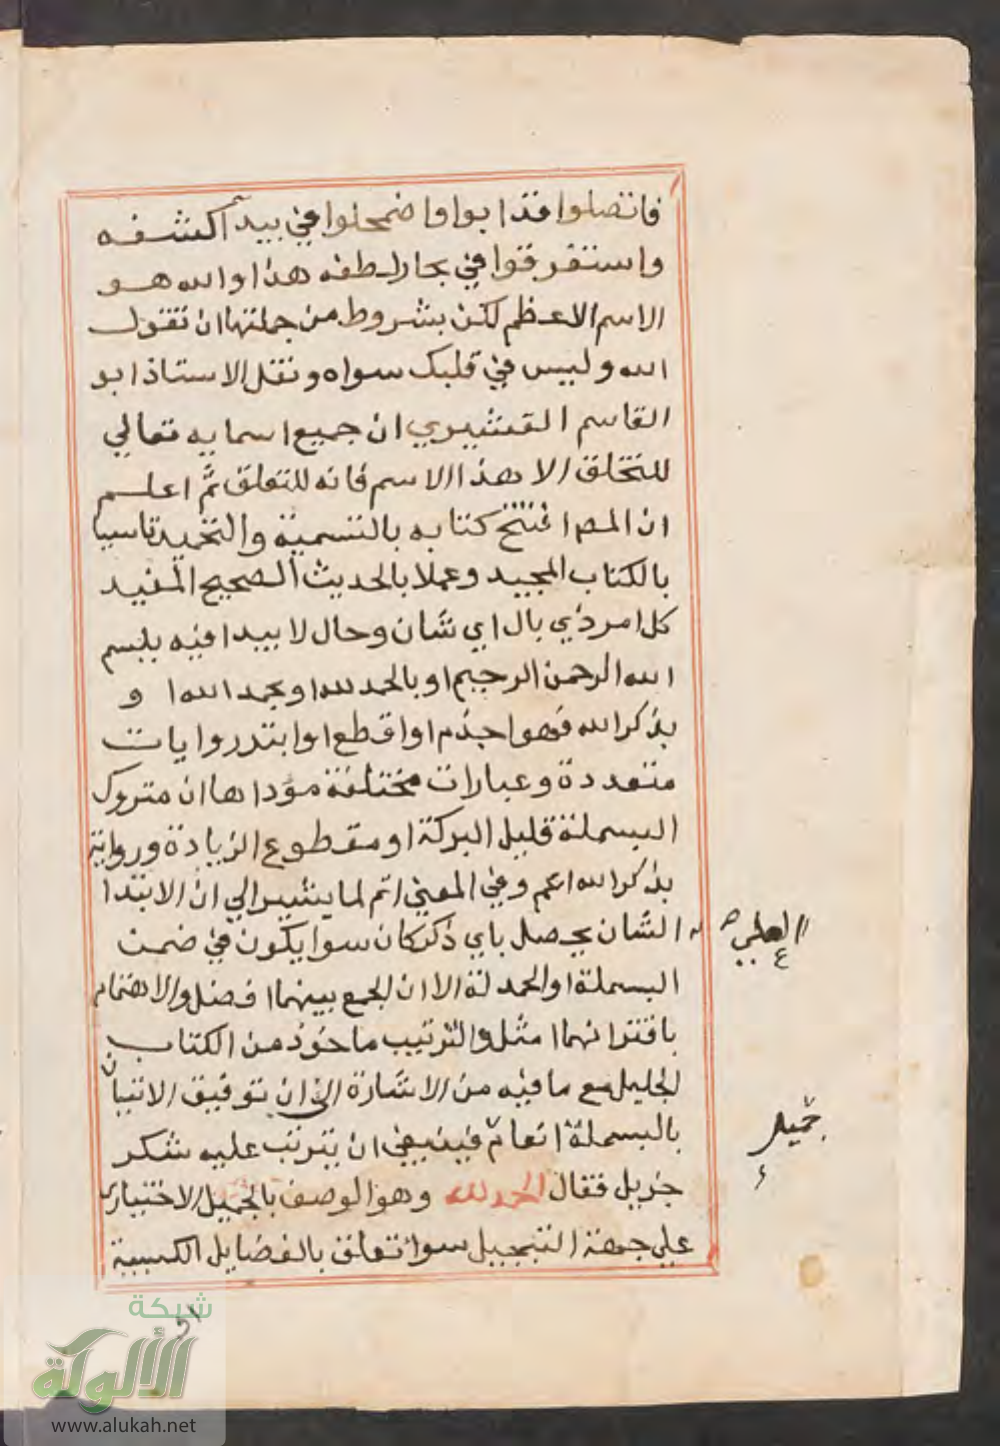 فاتصلوا فذابوا واضمحلوا في بيدآ كشفه
واستغرقوا في بحار لطفه هذا والله هو
الاسم الاعظم لكن بشروط من جملتها ان تقول
الله وليس في قلبك سواه ونقل الاستاذ ابو
القاسم القشيري ان جميع اسمايه تعالي
للتخلق الا هذا الاسم فانه للتعلق ثم اعلم
ان المصـ افتتح كتابه بالتسمية والتحميد تاسيا
بالكتاب المجيد وعملا بالحديث الصحيح المفيد
كل امر ذي بال اي شان وحال لا يبدا فيه ببسم
الله الرحمن الرحيم او بالحمد لله او بحمد الله او
بذكر الله فهو اجذم او اقطع او ابتر روايات
متعددة وعبارات مختلفة مؤداها ان متروك
البسملة قليل البركة او مقطوع الزيادة ورواية
بذكر الله اعم وفي المعني اتم لما يشير الي ان الابتدا
الشان يحصل باي ذكر كان سوا يكون في ضمن
البسملة او الحمدلة الا ان الجمع بينهما افضل والاهتمام
باقترانهما امثل والترتيب ماخوذ من الكتاب
الجليل مع ما فيه من الاشارة الي ان توفيق الاتيان
بالبسملة انعام فينبغي ان يترتب عليه شكر
جزيل فقال الحمد لله وهو الوصف بالجميل الاختياري
علي جهة التبجيل سوا تعلق بالفضايل الكسبية
العلي صـ
جميل
او
شبكة
الألوكة
www.alukah.net